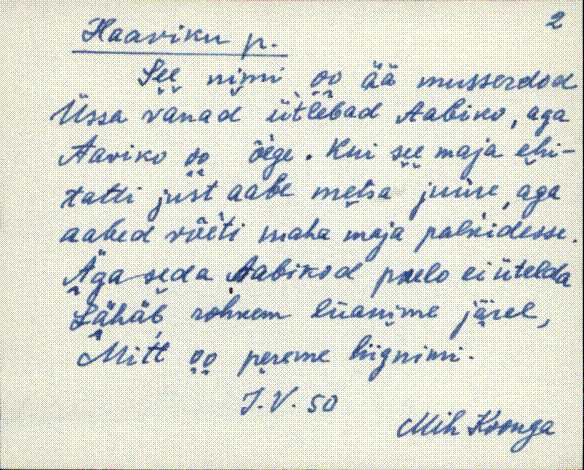 2
Haaviku p.
See nimi oo ää musserdod
Üssa vanad ütlebad Aabiko, aga
Aaviko oo õege. Kui see maja ehi-
tatti just aabe metsa juure, aga
aabed võeti maha maja palkidesse.
Äga seda Aabikod paelo ei ütelda
Lähäb rohkem liianime järel,
Mitt oo pereme liignimi.
J. V. 50
Mih Koonga